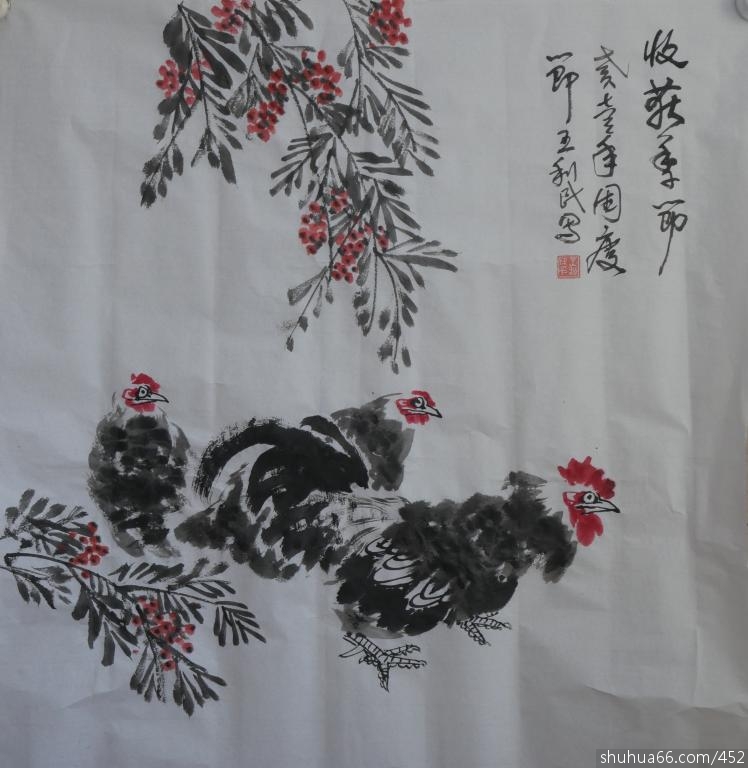 收获季節
贰壹年国慶
節王利民写
shuhua66.com/452